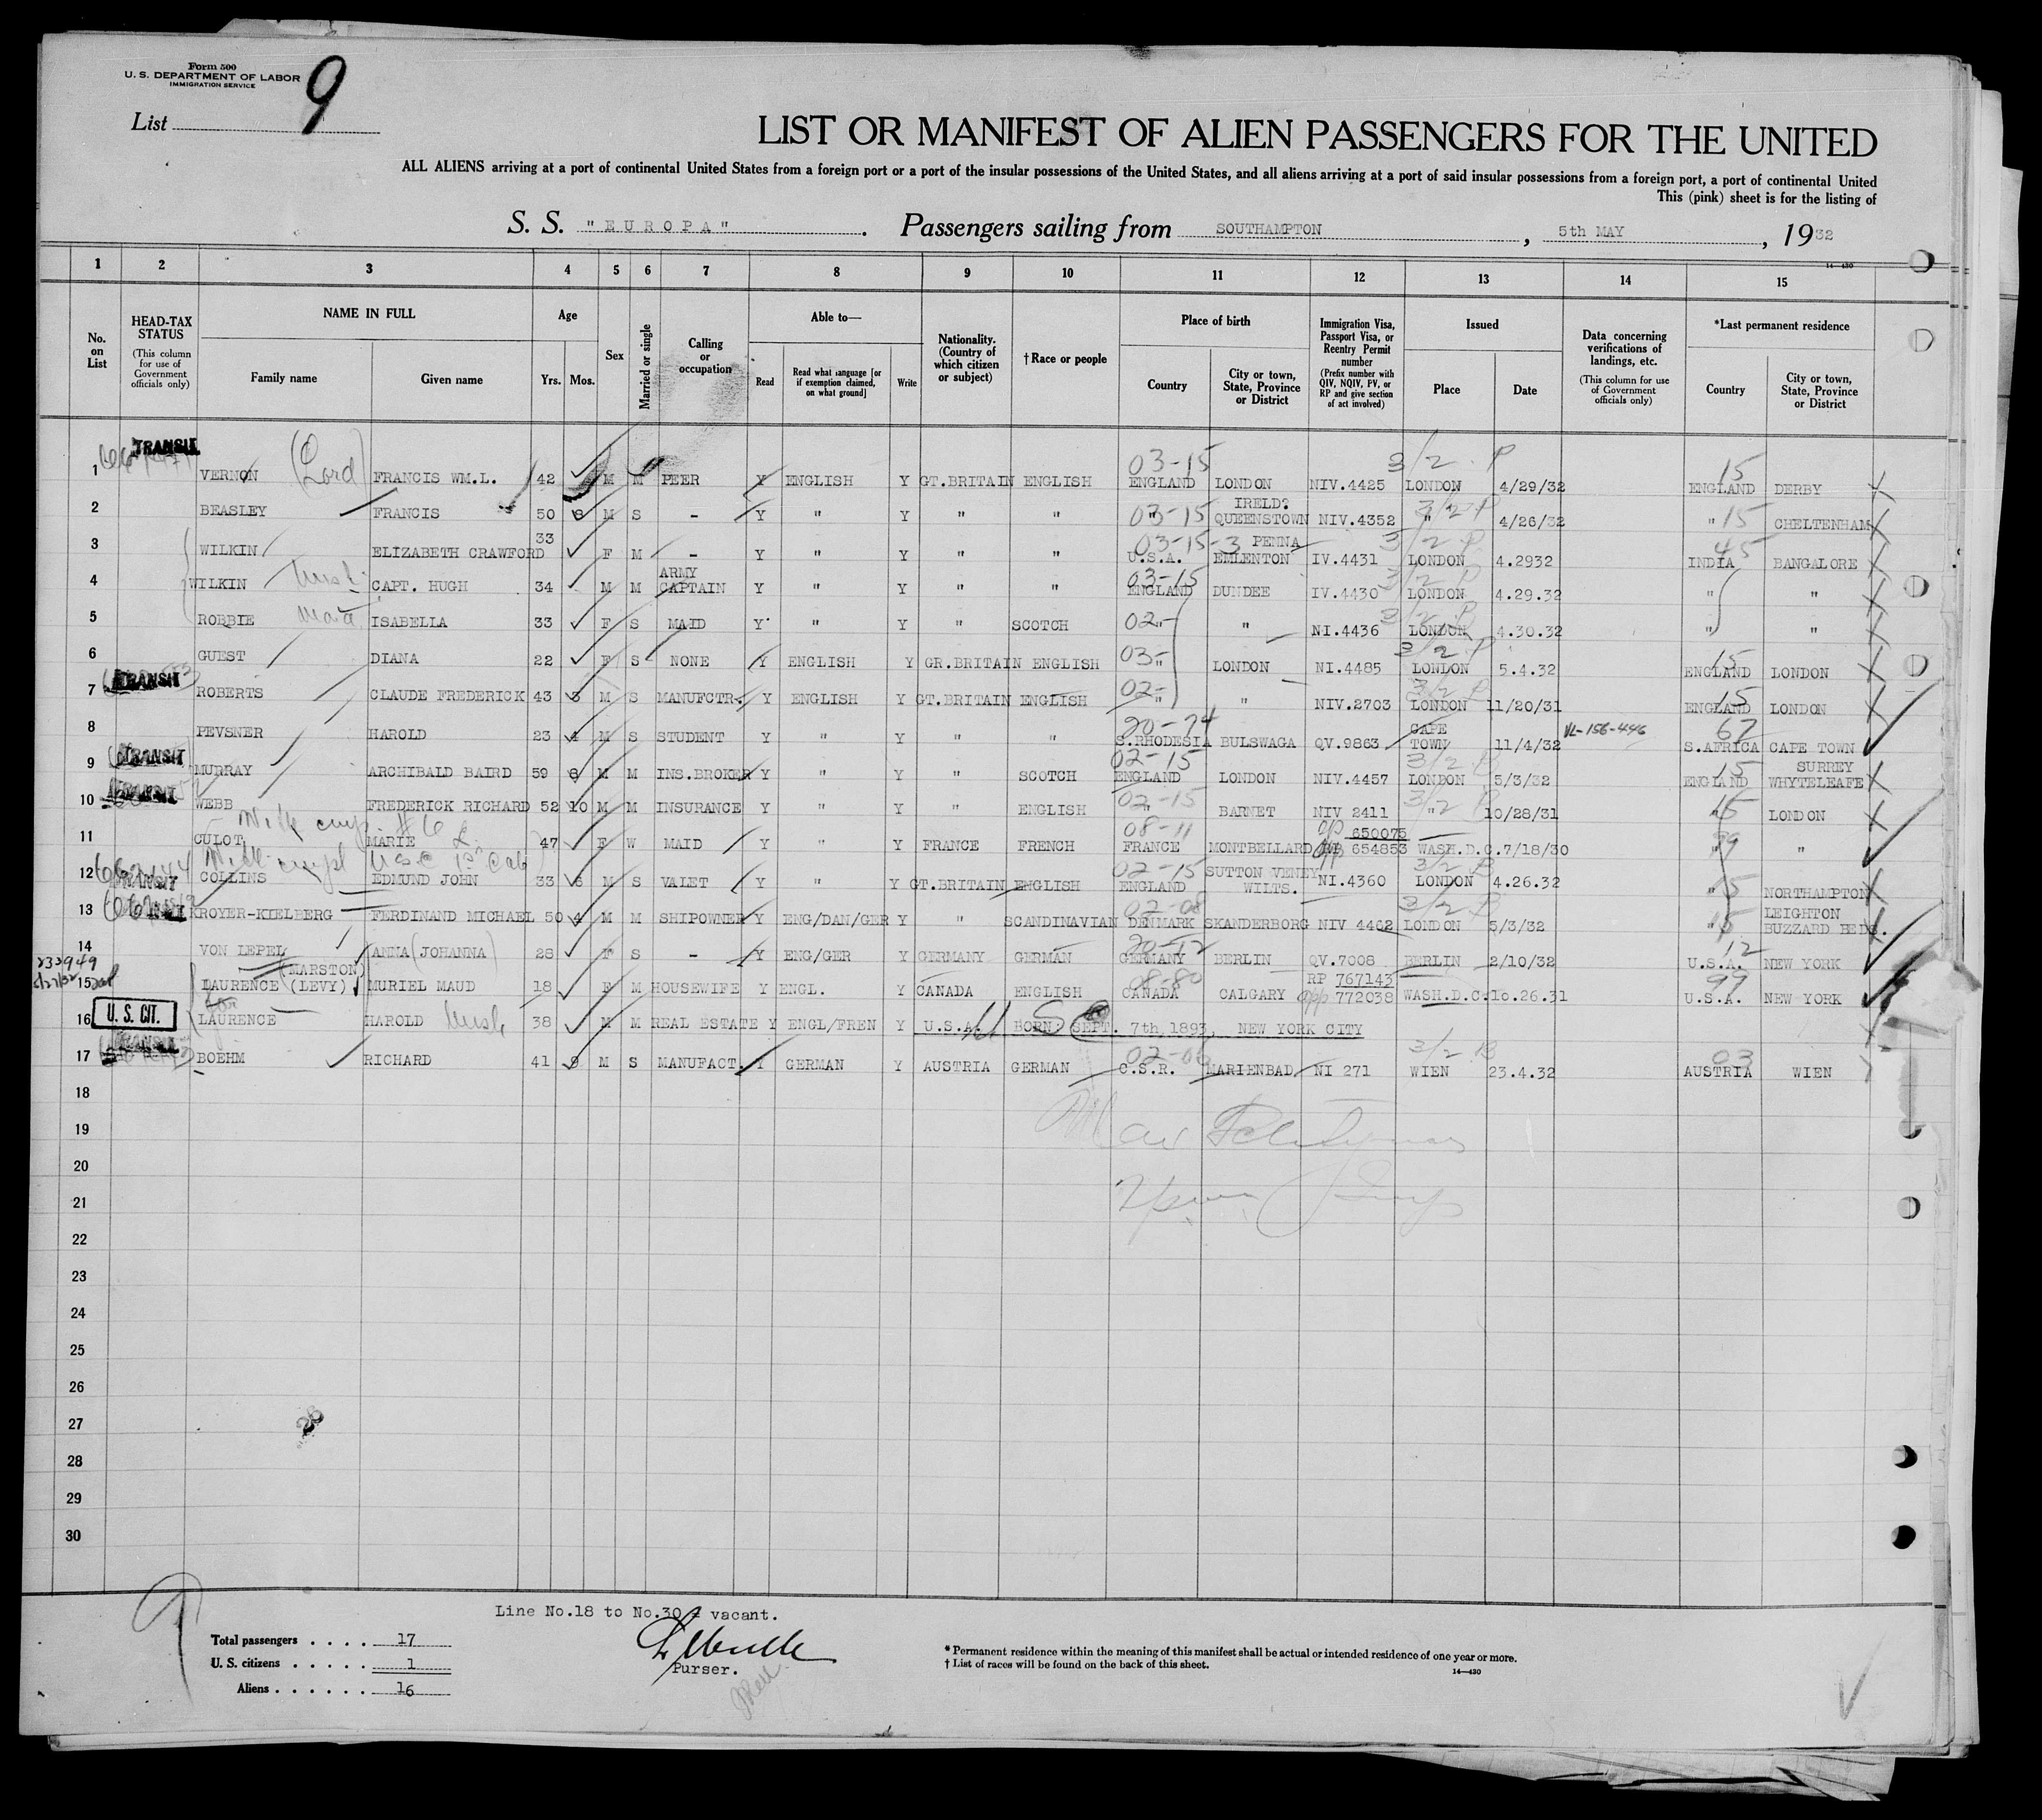 Form 500
U. S. DEPARTMENT OF LABOR
IMMIGRATION SERVICE
List 9
LIST OR MANIFEST OF ALIEN PASSENGERS FOR THE UNITED
ALL ALIENS arriving at a port of continental United States from a foreign port or a port of the insular possessions of the United States, and all aliens arriving at a port of said insular possessions from a foreign port, a port of continental United
This (pink) sheet is for the listing of
S. S. "EUROPA" . Passengers sailing from SOUTHAMPTON , 5th MAY , 1932
14—430
1 2 3 4 5 6 7 8 9 10 11 12 13 14 15
No. on List
HEAD-TAX STATUS (This column for use of Government officials only)
NAME IN FULL Family name Given name
Age Yrs. Mos.
Sex
Married or single
Calling or occupation
Able to— Read Read what language [or if exemption claimed, on what ground] Write
Nationality. (Country of which citizen or subject)
†Race or people
Place of birth Country City or town, State, Province or District
Immigration Visa, Passport Visa, or Reentry Permit number (Prefix number with QIV, NQIV, PV, or RP and give section of act involved)
Issued Place Date
Data concerning verifications of landings, etc. (This column for use of Government officials only)
*Last permanent residence Country City or town, State, Province or District
TRANSIT 03-15 3/2 P 15
1 VERNON (Lord) FRANCIS WM.L. 42 M M PEER Y ENGLISH Y GT.BRITAIN ENGLISH ENGLAND LONDON NIV.4425 LONDON 4/29/32 ENGLAND DERBY
IRELD.
2 BEASLEY FRANCIS 50 8 M S - Y " Y " " 03-15 QUEENSTOWN NIV.4352 " 3/2 P 4/26/32 " 15 CHELTENHAM
33 03-15-3 PENNA 3/2 P 45
3 WILKIN ELIZABETH CRAWFORD F M - Y " Y " " U.S.A. EMLENTON IV.4431 LONDON 4.2932 INDIA BANGALORE
ARMY 03-15 3/2 P
4 WILKIN CAPT. HUGH 34 M M CAPTAIN Y " Y " " ENGLAND DUNDEE IV.4430 LONDON 4.29.32 " "
5 ROBBIE Maid ISABELLA 33 F S MAID Y " Y " SCOTCH 02 " " NI.4436 LONDON 4.30.32 " "
3/2 P 15
6 GUEST DIANA 22 F S NONE Y ENGLISH Y GR.BRITAIN ENGLISH 03- " LONDON NI.4485 LONDON 5.4.32 ENGLAND LONDON
TRANSIT
7 ROBERTS CLAUDE FREDERICK 43 3 M S MANUFCTR. Y ENGLISH Y GT.BRITAIN ENGLISH 02- " " NIV.2703 LONDON 11/20/31 ENGLAND 15 LONDON
20-74 CAPE VL-156-446 67
8 PEVSNER HAROLD 23 4 M S STUDENT Y " Y " " S.RHODESIA BULSWAGA QV.9863 TOWN 11/4/32 S.AFRICA CAPE TOWN
TRANSIT 02-15 15 SURREY
9 MURRAY ARCHIBALD BAIRD 59 8 M M INS.BROKER Y " Y " SCOTCH ENGLAND LONDON NIV.4457 LONDON 5/3/32 ENGLAND WHYTELEAFE
TRANSIT 02-15
10 WEBB FREDERICK RICHARD 52 10 M M INSURANCE Y " Y " ENGLISH " BARNET NIV 2411 " 10/28/31 15 LONDON
08-11 650075
11 CULOT MARIE 47 F W MAID Y " Y FRANCE FRENCH FRANCE MONTBELLARD 654853 WASH.D.C.7/18/30 " "
TRANSIT 02-15 SUTTON VENEY
12 COLLINS EDMUND JOHN 33 6 M S VALET Y " Y GT.BRITAIN ENGLISH ENGLAND WILTS. NI.4360 LONDON 4.26.32 " 15 NORTHAMPTON
02-08 LEIGHTON
13 KROYER-KIELBERG FERDINAND MICHAEL 50 4 M M SHIPOWNER Y ENG/DAN/GER Y " SCANDINAVIAN DENMARK SKANDERBORG NIV 4462 LONDON 5/3/32 " 15 BUZZARD BEDS.
20-12 12
14 VON LEPEL ANNA (JOHANNA) 28 F S - Y ENG/GER Y GERMANY GERMAN GERMANY BERLIN QV.7008 BERLIN 2/10/32 U.S.A. NEW YORK
233949 (MARSTON) 08-80 RP 767143 99
15 LAURENCE (LEVY) MURIEL MAUD 18 F M HOUSEWIFE Y ENGL. Y CANADA ENGLISH CANADA CALGARY app 772038 WASH.D.C.10.26.31 U.S.A. NEW YORK
U. S. CIT.
16 LAURENCE HAROLD 38 M M REAL ESTATE Y ENGL/FREN Y U.S.A. BORN: SEPT. 7th, 1893, NEW YORK CITY
TRANSIT 03
17 BOEHM RICHARD 41 9 M S MANUFACT. Y GERMAN Y AUSTRIA GERMAN C.S.R. MARIENBAD NI 271 WIEN 23.4.32 AUSTRIA WIEN
18
19
20
21
22
23
24
25
26
27
28
29
30
Line No.18 to No.30 vacant.
Total passengers . . . . 17
U. S. citizens . . . . . 1
Aliens . . . . . . 16
Purser.
* Permanent residence within the meaning of this manifest shall be actual or intended residence of one year or more.
† List of races will be found on the back of this sheet.
14—430